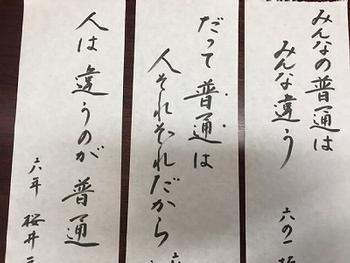 みんなの普通は
みんな違う
六の一
だって普通は
人それぞれだから
人は違うのが普通
六年 桜井